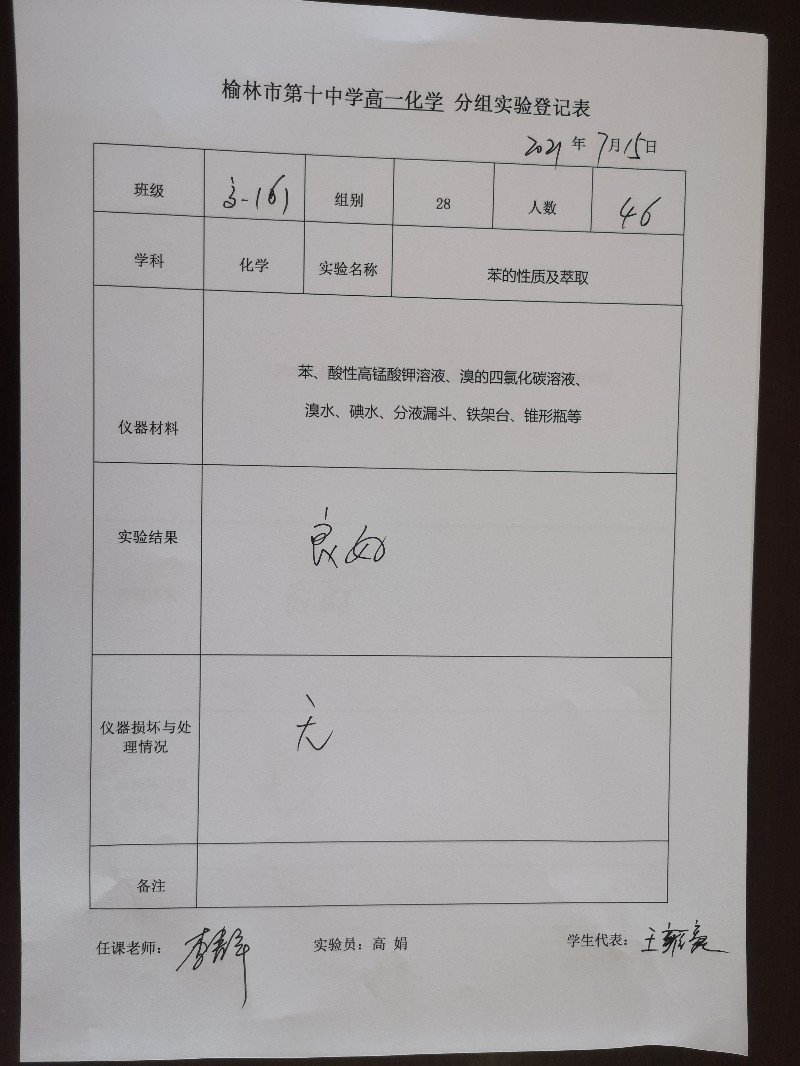 榆林市第十中学高一化学 分组实验登记表
2021年7月15日
班级 高一(6) 组别 28 人数 46
学科 化学 实验名称 苯的性质及萃取
苯、酸性高锰酸钾溶液、溴的四氯化碳溶液、
仪器材料 溴水、碘水、分液漏斗、铁架台、锥形瓶等
实验结果 良好
仪器损坏与处
理情况 无
备注
任课老师: 实验员:高 娟 学生代表:王